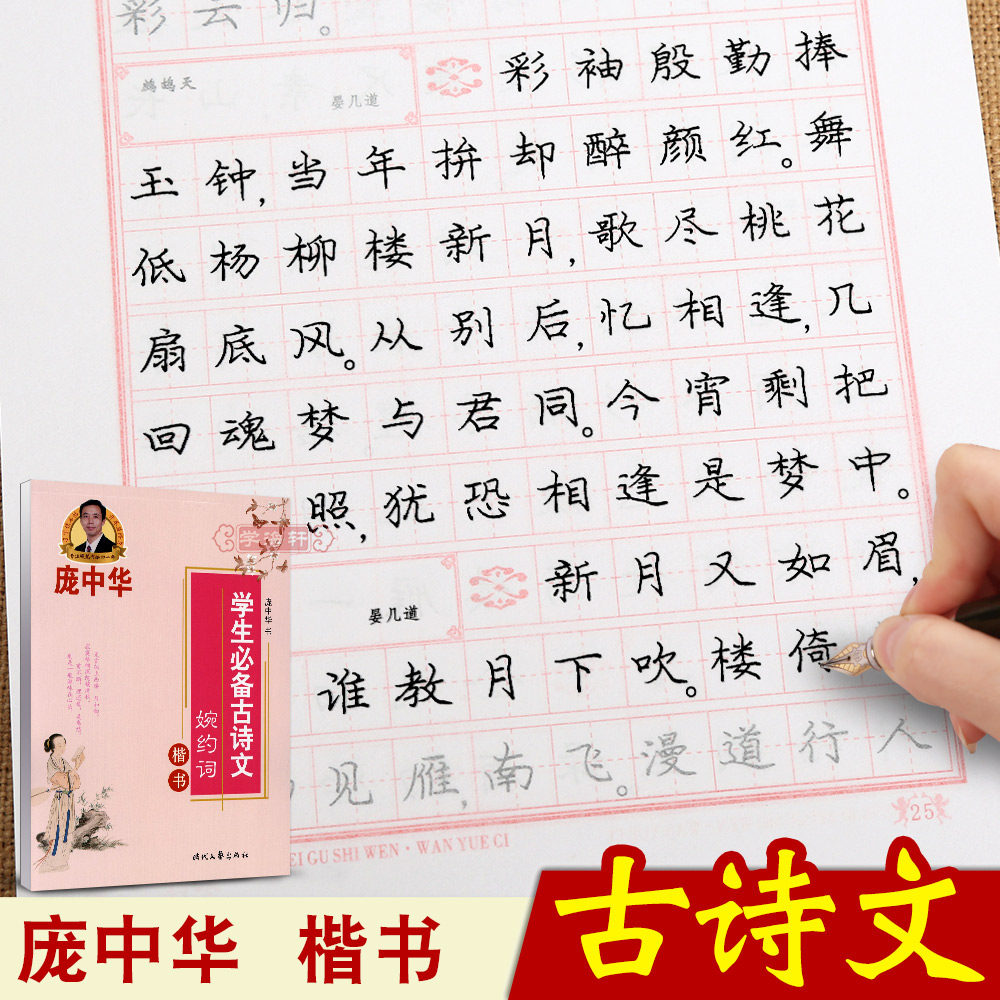 彩云归。
鹧鸪天
晏几道
彩袖殷勤捧
玉钟,当年拚却醉颜红。舞
低杨柳楼新月,歌尽桃花
扇底风。从别后,忆相逢,几
回魂梦与君同。今宵剩把
照,犹恐相逢是梦中。
晏几道
新月又如眉,
谁教月下吹。楼倚
见雁南飞。漫道行人
25
EI GU SHI WEN · WAN YUE CI
学海轩
庞中华
庞中华 书
学生必备古诗文
婉约词
楷书
时代文艺出版社
庞中华 楷书
古诗文